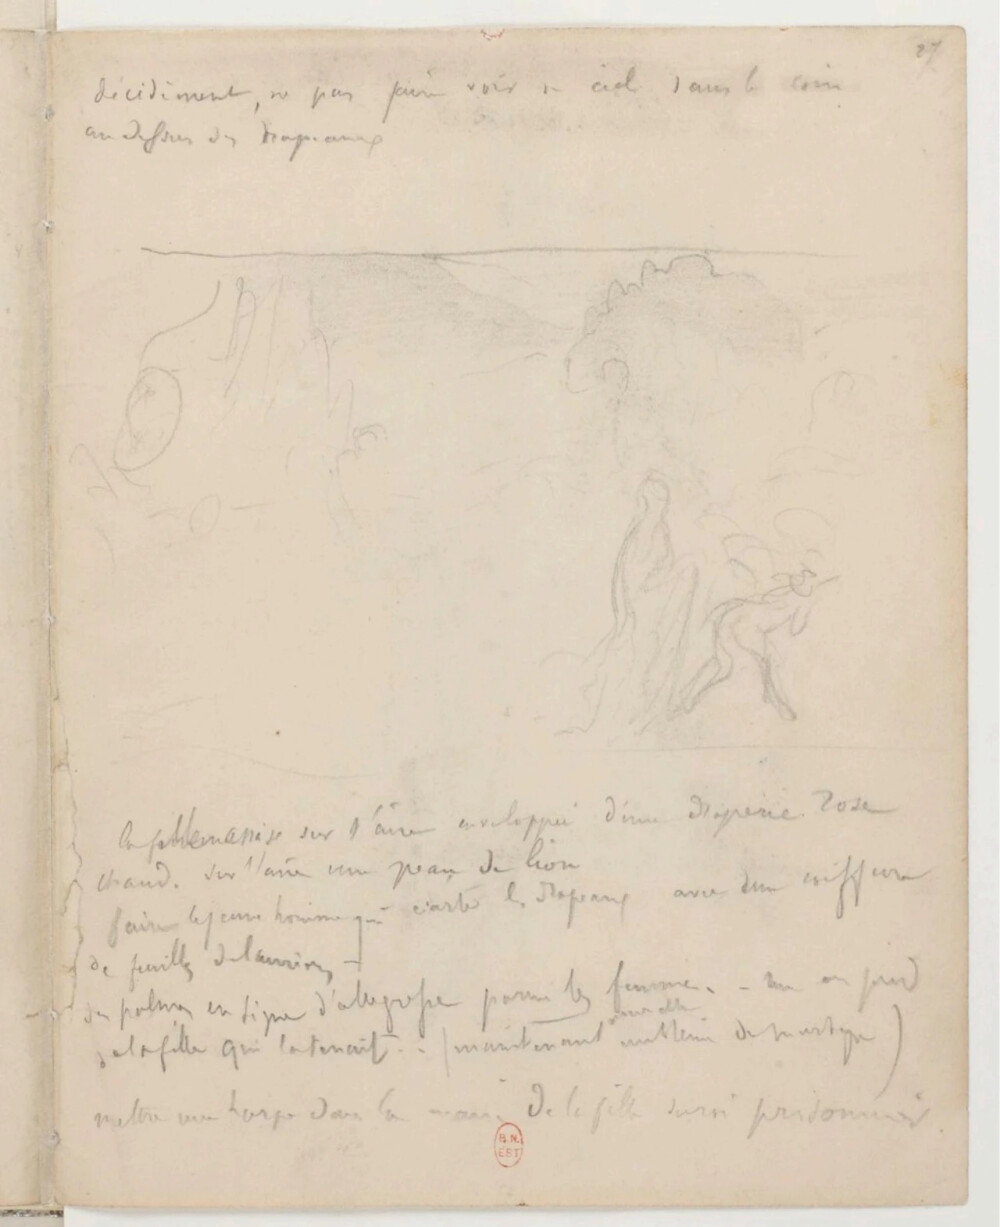 27
décidément, ne pas faire voir de ciel dans le coin
au dessus des drapeaux
la fille assise sur l'âne enveloppée d'une draperie rose
chaud. sur l'âne une peau de lion
faire le jeune homme qui écarte les drapeaux avec une coiffure
de feuilles de lauriers
des palmes en signe d'allegresse parmi les femmes. - une au pied
de la fille qui la tenait. (maintenant pour elle emblème de martyre)
mettre une harpe dans la main de la fille du roi prisonnier
B.N.
EST